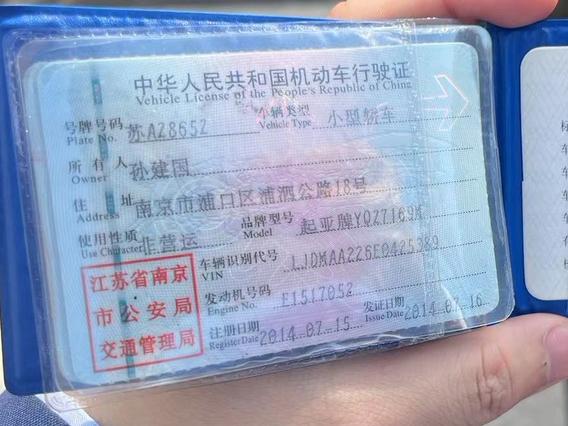 中华人民共和国机动车行驶证
Vehicle License of the People's Republic of China
号牌号码 苏A28652 车辆类型 小型轿车
Plate No. Vehicle Type
所有人 孙建国
Owner
住址 南京市浦口区浦泗公路18号
Address
使用性质 非营运 品牌型号 起亚牌YQZ7169M
Use Character Model
江苏省南京
市公安局
交通管理局
车辆识别代号
VIN LJDMAA226E0425389
发动机号码 E1517052
Engine No.
注册日期 2014-07-15 发证日期 2014-07-16
Register Date Issue Date